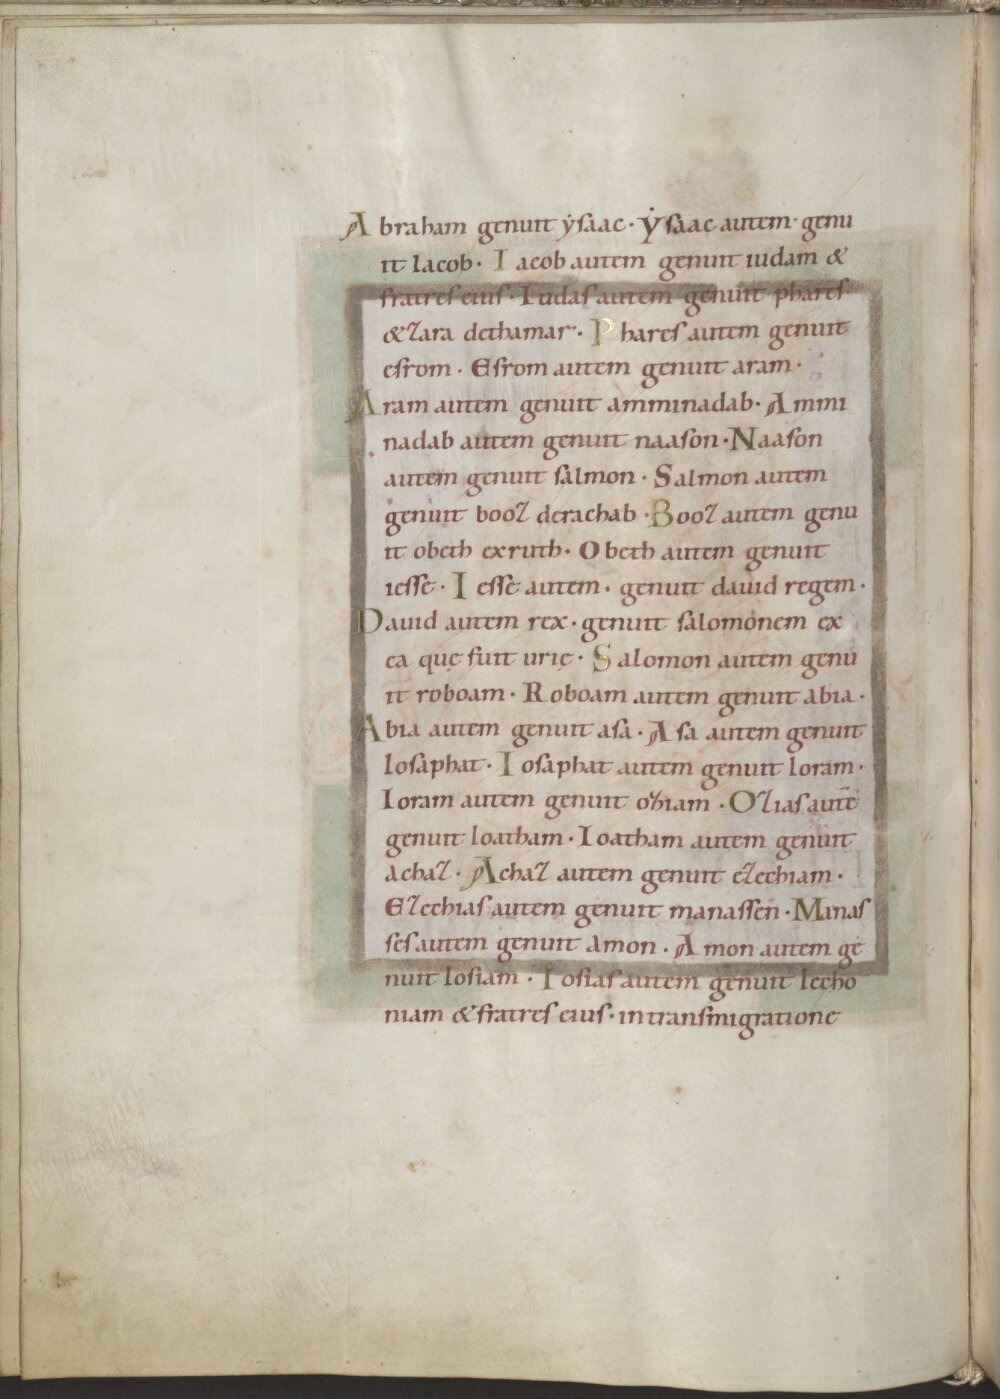 Abraham genuit ẏsaac · Ẏsaac autem · genu
it Iacob · Iacob autem genuit iudam &
fratres eius · Iudas autem genuit phares
& zara dethamar · Phares autem genuit
esrom · Esrom autem genuit aram ·
Aram autem genuit amminadab · Ammi
nadab autem genuit naason · Naason
autem genuit salmon · Salmon autem
genuit booz derachab · Booz autem genu
it obeth exruth · Obeth autem genuit
iesse · Iesse autem · genuit dauid regem ·
Dauid autem rex · genuit salomonem ex
ea quę fuit urię · Salomon autem genu
it roboam · Roboam autem genuit abia ·
Abia autem genuit asa · Asa autem genuit
Iosaphat · Iosaphat autem genuit Ioram ·
Ioram autem genuit oziam · Ozias autē
genuit Ioatham · Ioatham autem genuit
achaz · Achaz autem genuit ezechiam ·
Ezechias autem genuit manassen · Manas
ses autem genuit amon · Amon autem ge
nuit Iosiam · Iosias autem genuit Iecho
niam & fratres eius · in transmigratione